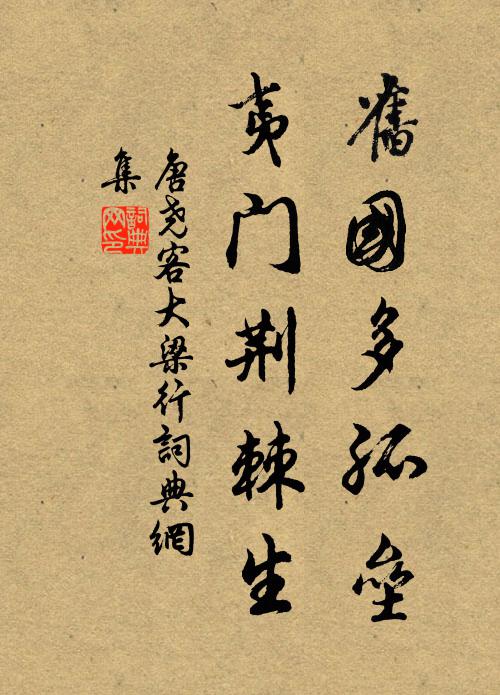 舊國多孤壘
夷門荆棘生
唐堯客大梁行詞典網
集
詞典网印